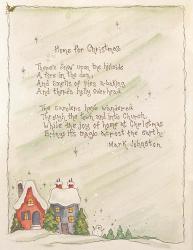 Home for Christmas
There's snow upon the hillside
A fire in the den,
And smells of pies a-baking
And there's holly overhead
The carolers have wandered
Through the town and into Church,
While the joy of home at Christmas
Brings its magic across the earth.
Mark Johnston